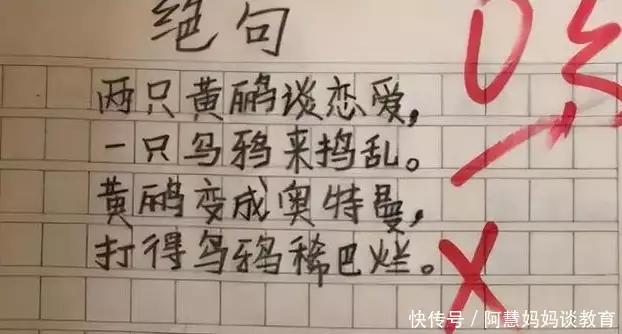 绝句
两只黄鹂谈恋爱，
一只乌鸦来捣乱。
黄鹂变成奥特曼，
打得乌鸦稀巴烂。
快传号／阿慧妈妈谈教育